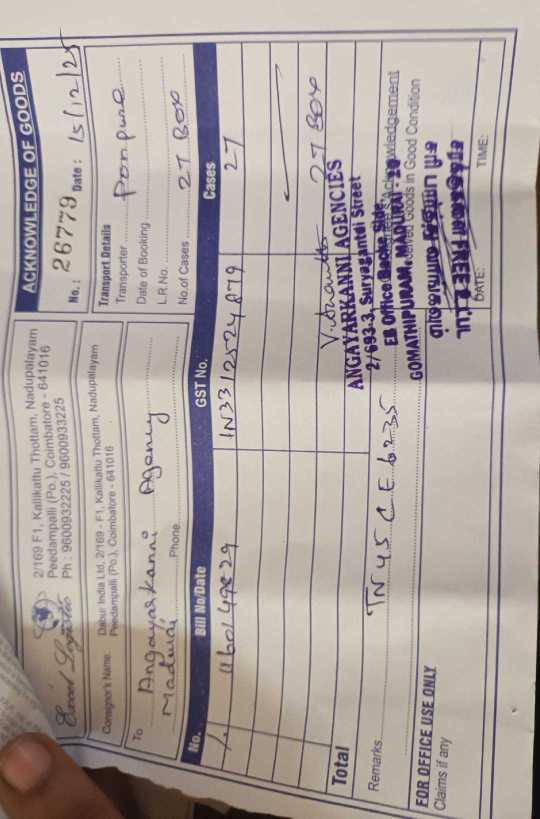 2/169 F1, Kallikattu Thottam, Nadupalayam
Peedampalli (Po.), Coimbatore - 641016
Ph : 9600932225 / 9600933225
ACKNOWLEDGE OF GOODS
No. : 26779 Date : 15/12/25
Consignor's Name Dabur India Ltd, 2/169 - F1, Kallikattu Thottam, Nadupalayam
Peedampalli (Po.), Coimbatore - 641016
To Angayarkanni Agency
Madurai Phone
Transport Details
Transporter
Date of Booking
L.R.No.
No.of Cases 27 Box
No. Bill No/Date GST No. Cases
1. 1N3312524879 27
Total 27 Box
Remarks TN 45 C E 6235
ANGAYARKANNI AGENCIES
2/693-3, Suryagandi Street
EB Office Backe Side,
GOMATHIPURAM, MADURAI - 20
Goods in Good Condition
FOR OFFICE USE ONLY
Claims if any
DATE: TIME: